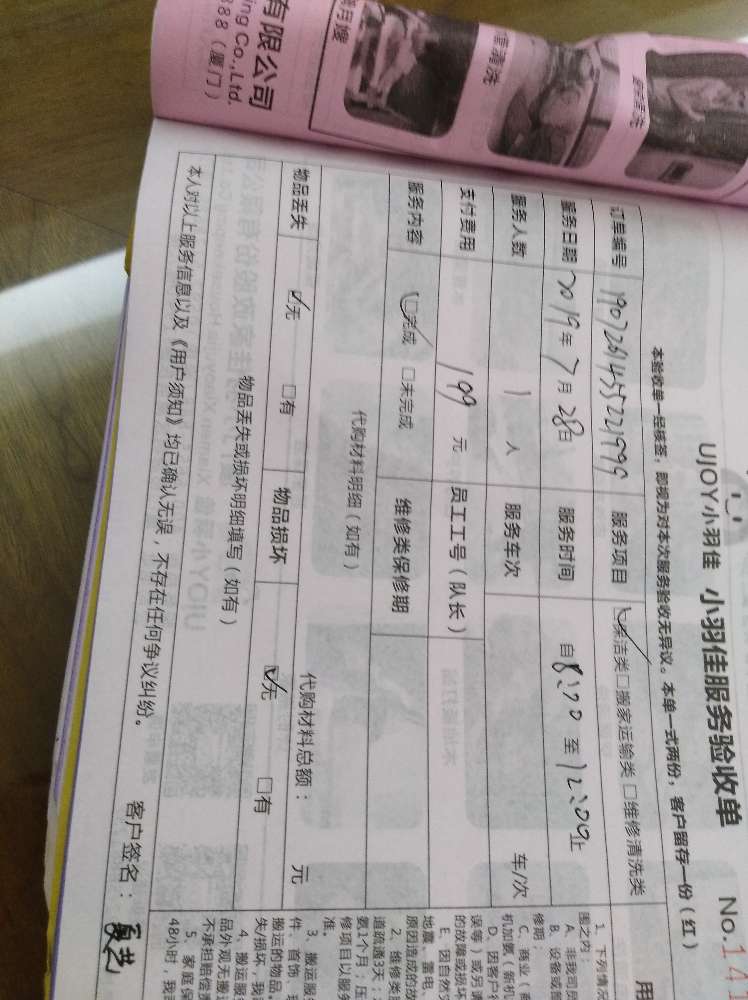 有限公司
ing Co.,Ltd.
888（厦门）
UJOY小羽佳 小羽佳服务验收单
No.141
本验收单一经核签，即视为对本次服务验收无异议。本单一式两份，客户留存一份（红）
订单编号 服务项目 ☑保洁类□搬家运输类□维修清洗类
服务日期 2019年7月28日 服务时间 自8:00至12:00止
服务人数 1 人 服务车次 车/次
支付费用 199 元 员工工号（队长）
服务内容 ☑完成 □未完成 维修类保修期
代购材料明细（如有） 代购材料总额： 元
物品丢失 ☑无 □有 物品损坏 ☑无 □有
物品丢失或损坏明细填写（如有）
本人对以上服务信息以及《用户须知》均已确认无误，不存在任何争议纠纷。
客户签名：
用
1、下列情况
围之内：
A、非我司
B、设备或
修期；
C、商业（
机加氨（新机
D、因客户
误等）或另
的故障或损坏
E、因自然灾
地震、雷电、
原因造成的故
2、维修类
道疏通3天；
氨1个月；压
修项目以服务
准。
3、搬运服务
件、首饰、
搬运的物品。
失/损坏，我
4、搬运服
品外观无搬
不承担赔偿责
5、家庭保
48小时，我